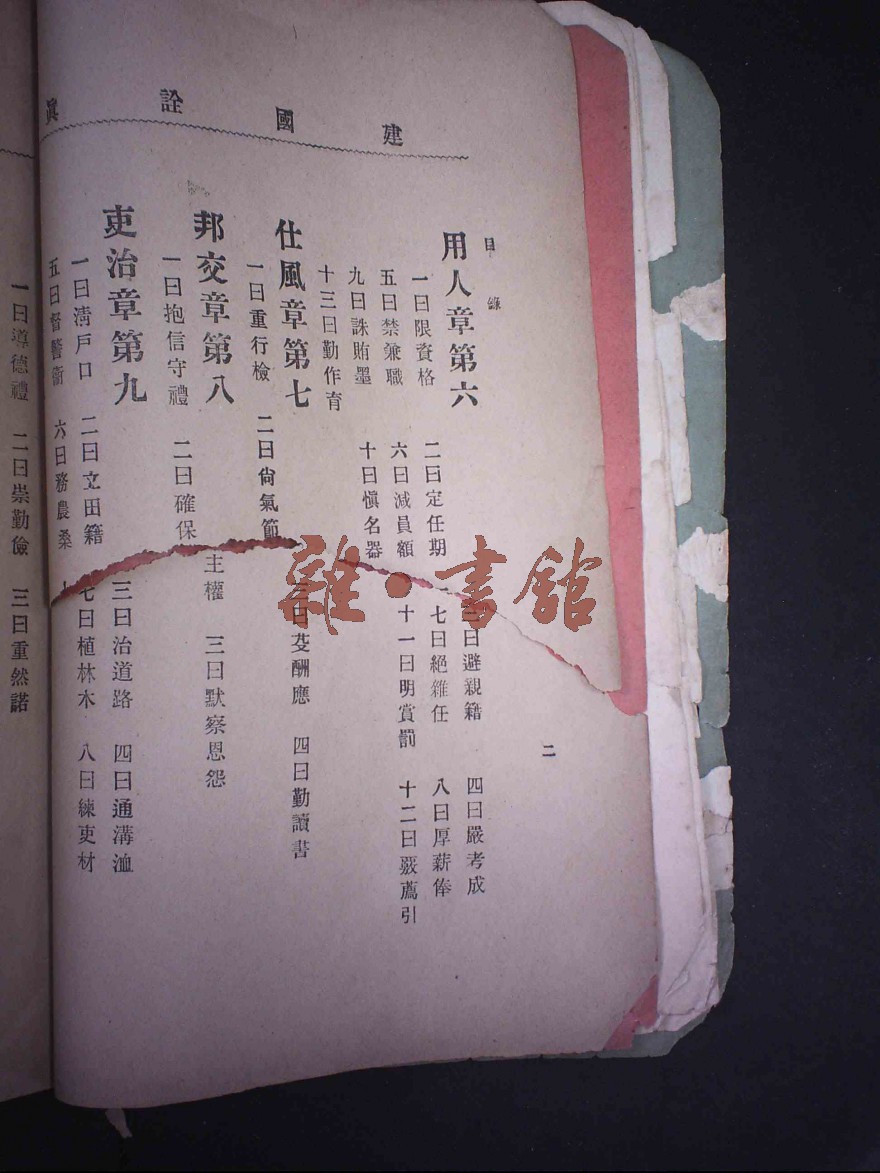 建國詮眞
目錄
用人章第六
一曰限資格 二曰定任期 三曰避親籍 四曰嚴考成
五曰禁兼職 六曰減員額 七曰絕雜任 八曰厚薪俸
九曰誅賄墨 十曰愼名器 十一曰明賞罰 十二曰覈薦引
十三曰勤作育
仕風章第七
一曰重行檢 二曰尙氣節 三曰芟酬應 四曰勤讀書
邦交章第八
一曰抱信守禮 二曰確保主權 三曰默察恩怨
吏治章第九
一曰淸戶口 二曰丈田籍 三曰治道路 四曰通溝洫
五曰督警衞 六曰務農桑 七曰植林木 八曰練吏材
二
一曰導德禮 二曰崇勤儉 三曰重然諾
雜·書館